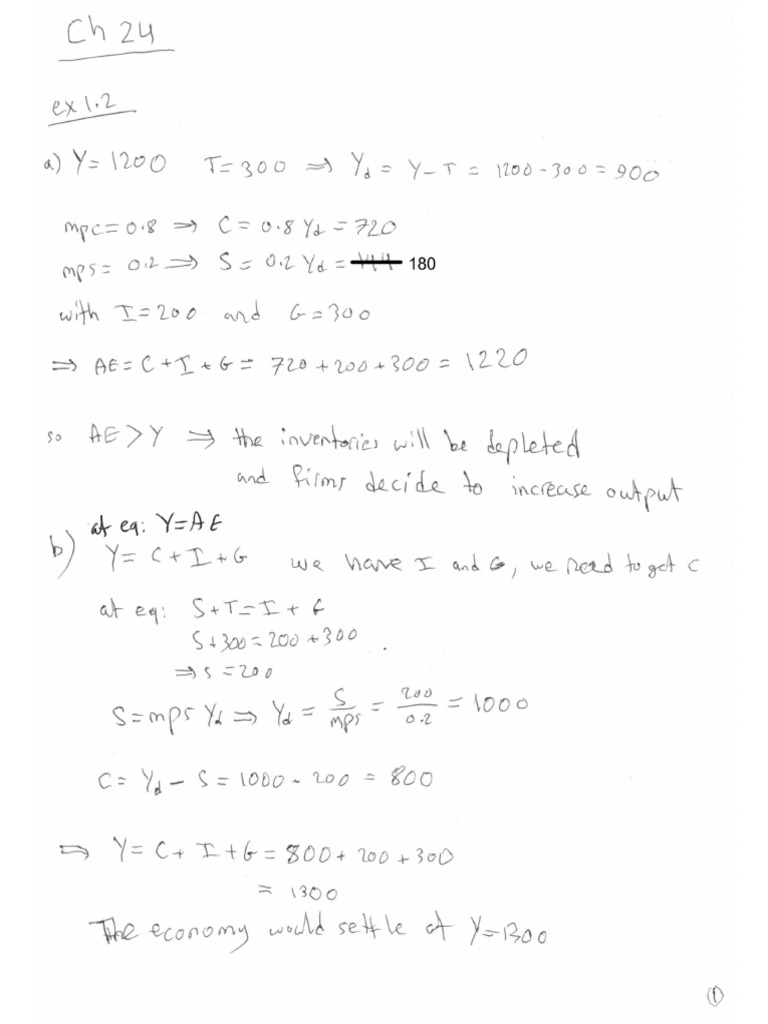 Ch 24
ex 1.2
a) Y= 1200 T= 300 ⇒ Yd = Y-T = 1200-300 = 900
mpc= 0.8 ⇒ C= 0.8 Yd = 720
mps= 0.2 ⇒ S= 0.2 Yd = 180
with I=200 and G=300
⇒ AE= C+I+G= 720+200+300= 1220
so AE>Y ⇒ the inventories will be depleted
and firms decide to increase output
at eq: Y=AE
b) Y= C+I+G we have I and G, we need to get C
at eq: S+T=I+G
S+300=200+300
⇒ S=200
S=mps Yd ⇒ Yd = S/mps = 200/0.2 = 1000
C= Yd - S = 1000 - 200 = 800
⇒ Y= C+I+G= 800+200+300
= 1300
The economy would settle at Y=1300
1